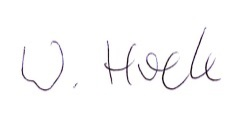 W. Hock